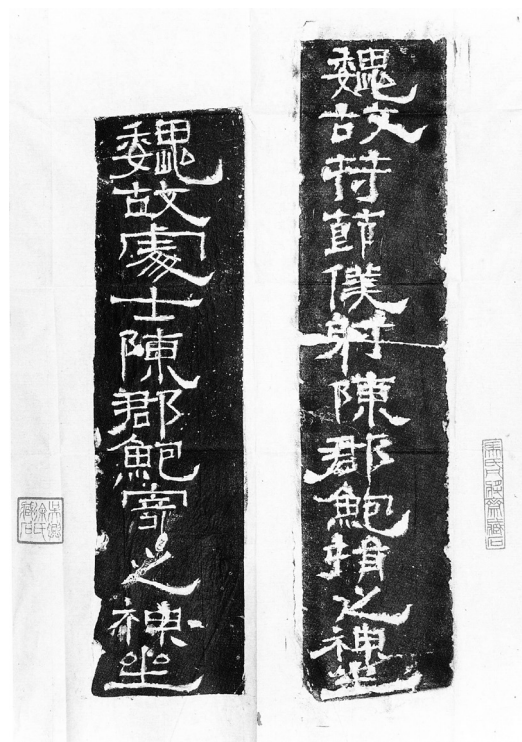 魏故持節僕射陳郡鮑捐之神坐
魏故處士陳郡鮑寄之神坐